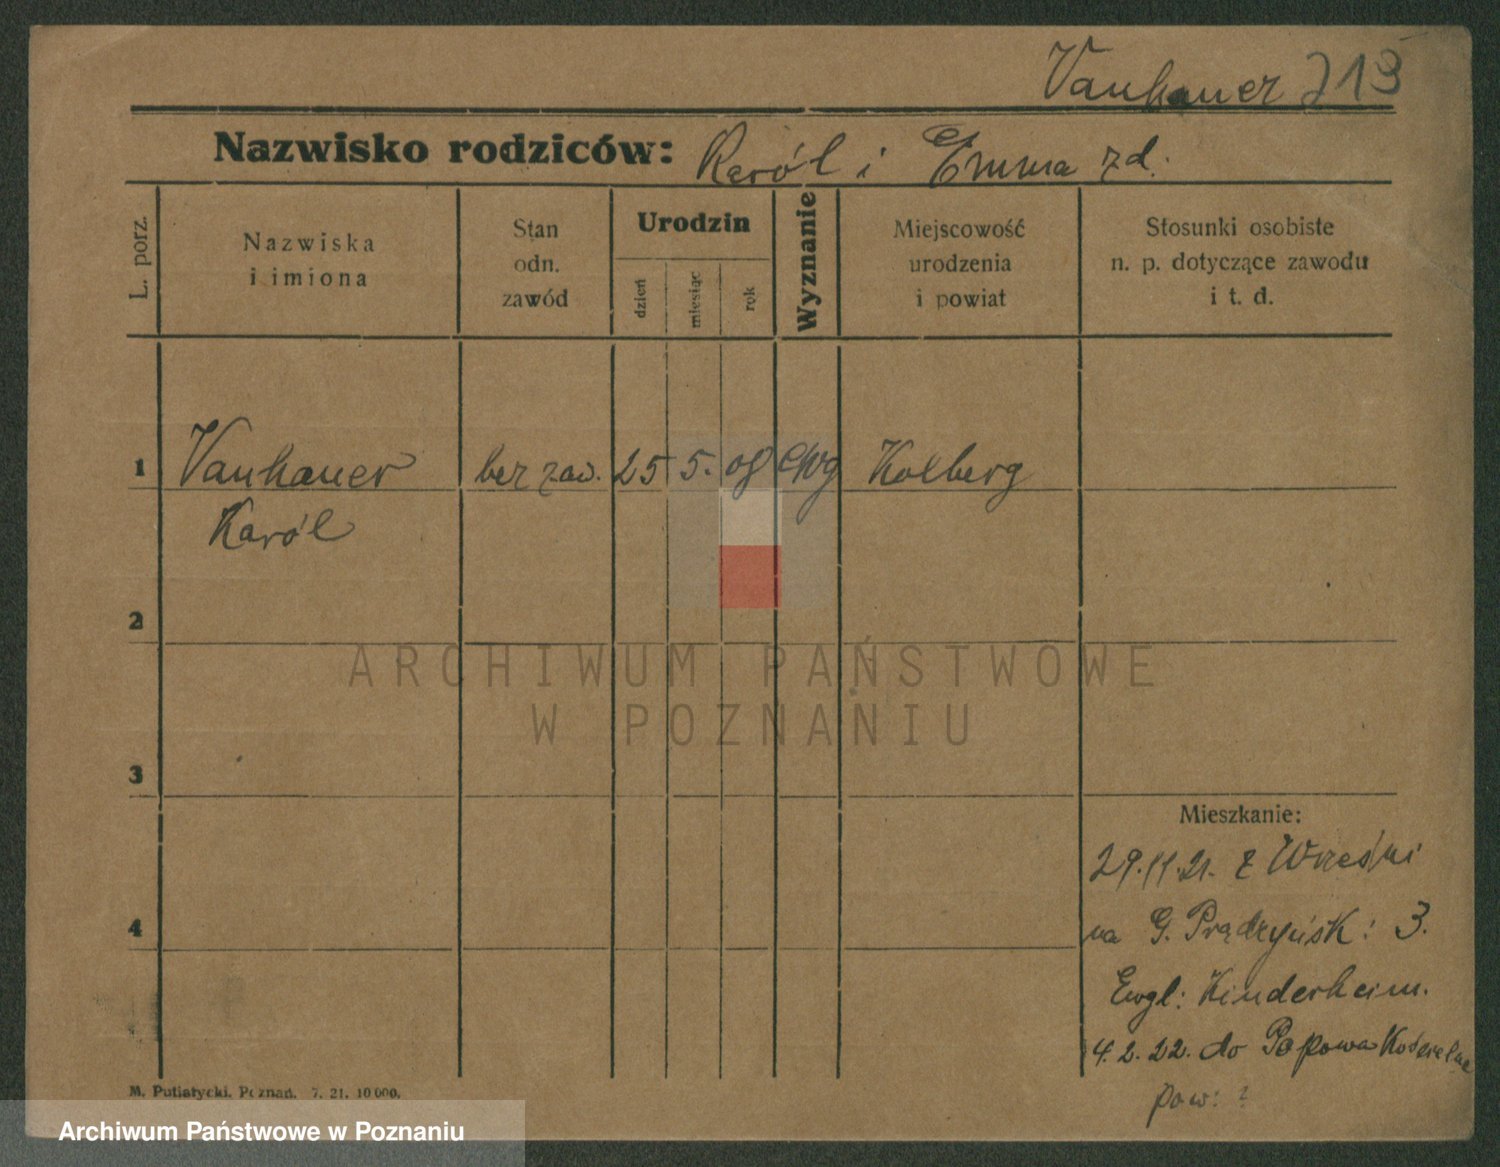 Vanhauer 213
Nazwisko rodziców: Karól i Emma zd.
L. porz.
Nazwiska
i imiona
Stan
odn.
zawód
Urodzin
dzień
miesiąc
rok
Wyznanie
Miejscowość
urodzenia
i powiat
Stosunki osobiste
n. p. dotyczące zawodu
i t. d.
1 Vanhauer bez zaw. 25 5. 08 ewg Kolberg
Karól
2
ARCHIWUM PAŃSTWOWE
W POZNANIU
3
Mieszkanie:
29.11.21. z Wrześni
4
na G. Prądzyńsk: 3.
Ewgl: Kinderheim.
4.2.22. do Popowa Kościelne
pow: ?
M. Putiatycki. Poznań. 7. 21. 10 000.
Archiwum Państwowe w Poznaniu